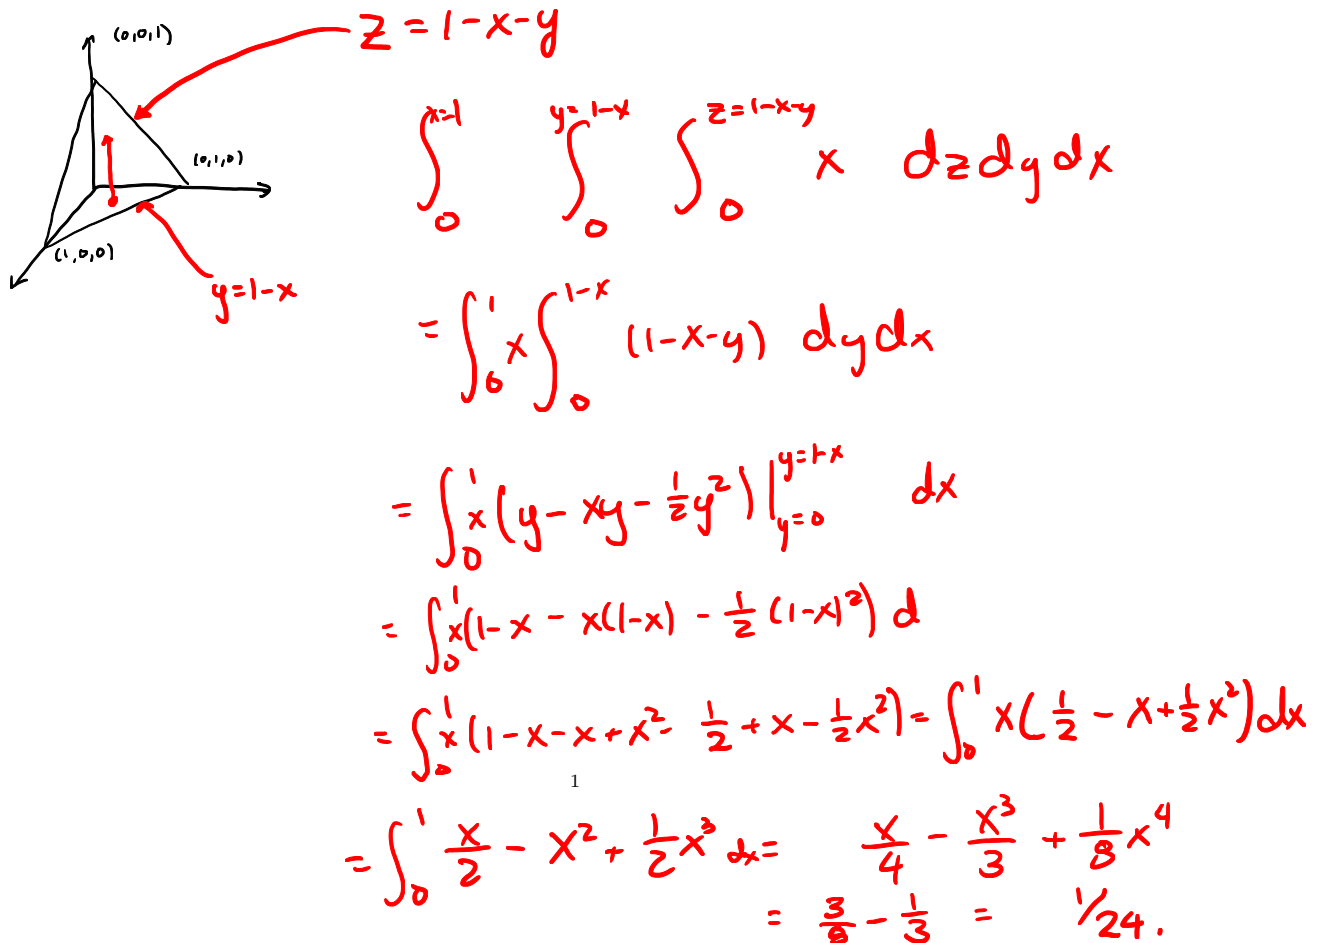 (0,0,1)
z = 1-x-y
(0,1,0)
(1,0,0)
y=1-x
∫_0^{x=1} ∫_0^{y=1-x} ∫_0^{z=1-x-y} x dz dy dx
= ∫_0^1 x ∫_0^{1-x} (1-x-y) dy dx
= ∫_0^1 x (y - xy - 1/2 y^2) |_{y=0}^{y=1-x} dx
= ∫_0^1 x(1-x - x(1-x) - 1/2 (1-x)^2) d
= ∫_0^1 x (1-x-x+x^2 - 1/2 + x - 1/2 x^2) = ∫_0^1 x( 1/2 - x + 1/2 x^2) dx
1
= ∫_0^1 x/2 - x^2 + 1/2 x^3 dx = x/4 - x^3/3 + 1/8 x^4
= 3/8 - 1/3 = 1/24.